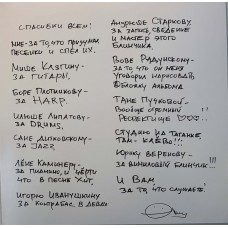 СПАСИБКИ ВСЕМ!
МНЕ-
ЗА ТО, ЧТО ПРИДУМАЛ
ПЕСЕНКИ И СПЕЛ ИХ,
МИШЕ КЛЯГИНУ-
ЗА ГИТАРЫ,
БОРЕ ПЛОТНИКОВУ-
ЗА HARP,
ИЛЮШЕ ЛИПАТОВУ-
ЗА DRUMS,
САНЕ ДИТКОВСКОМУ-
ЗА JAZZ
ЛЁНЕ КАМИНЕРУ-
ЗА ПИАНИНО, И ЧЕРТИ
ЧТО В ПЕСНЕ ХИТ,
ИГОРЮ ИВАНУШКИНУ
ЗА КОНТРАБАС,
АМБРОСЕ СТАРКОВУ
ЗА ЗАПИСЬ, СВЕДЕНИЕ
И МАСТЕР ЭТОГО
БЛИНЧИКА,
ВОВЕ РАДУНСКОМУ-
ЗА ТО, ЧТО ОН МЕНЯ
УГОВОРИЛ НАРИСОВАТЬ
ОБЛОЖКУ АЛЬБОМА
ТАНЕ ПУЧКОВОЙ
ВООБЩЕ ОГРОМНЫЙ
РЕСПЕКТИЩЕ ♡♡♡
СТУДИЮ НА ТАГАНКЕ,
ТАМ - КЛЁВО!!!
ЮРИКУ ВЕРЕНОВУ-
ЗА ВИНИЛОВЫЙ БЛИНЧИК!!!
И ВАМ
ЗА ТО, ЧТО СЛУШАЕТЕ!